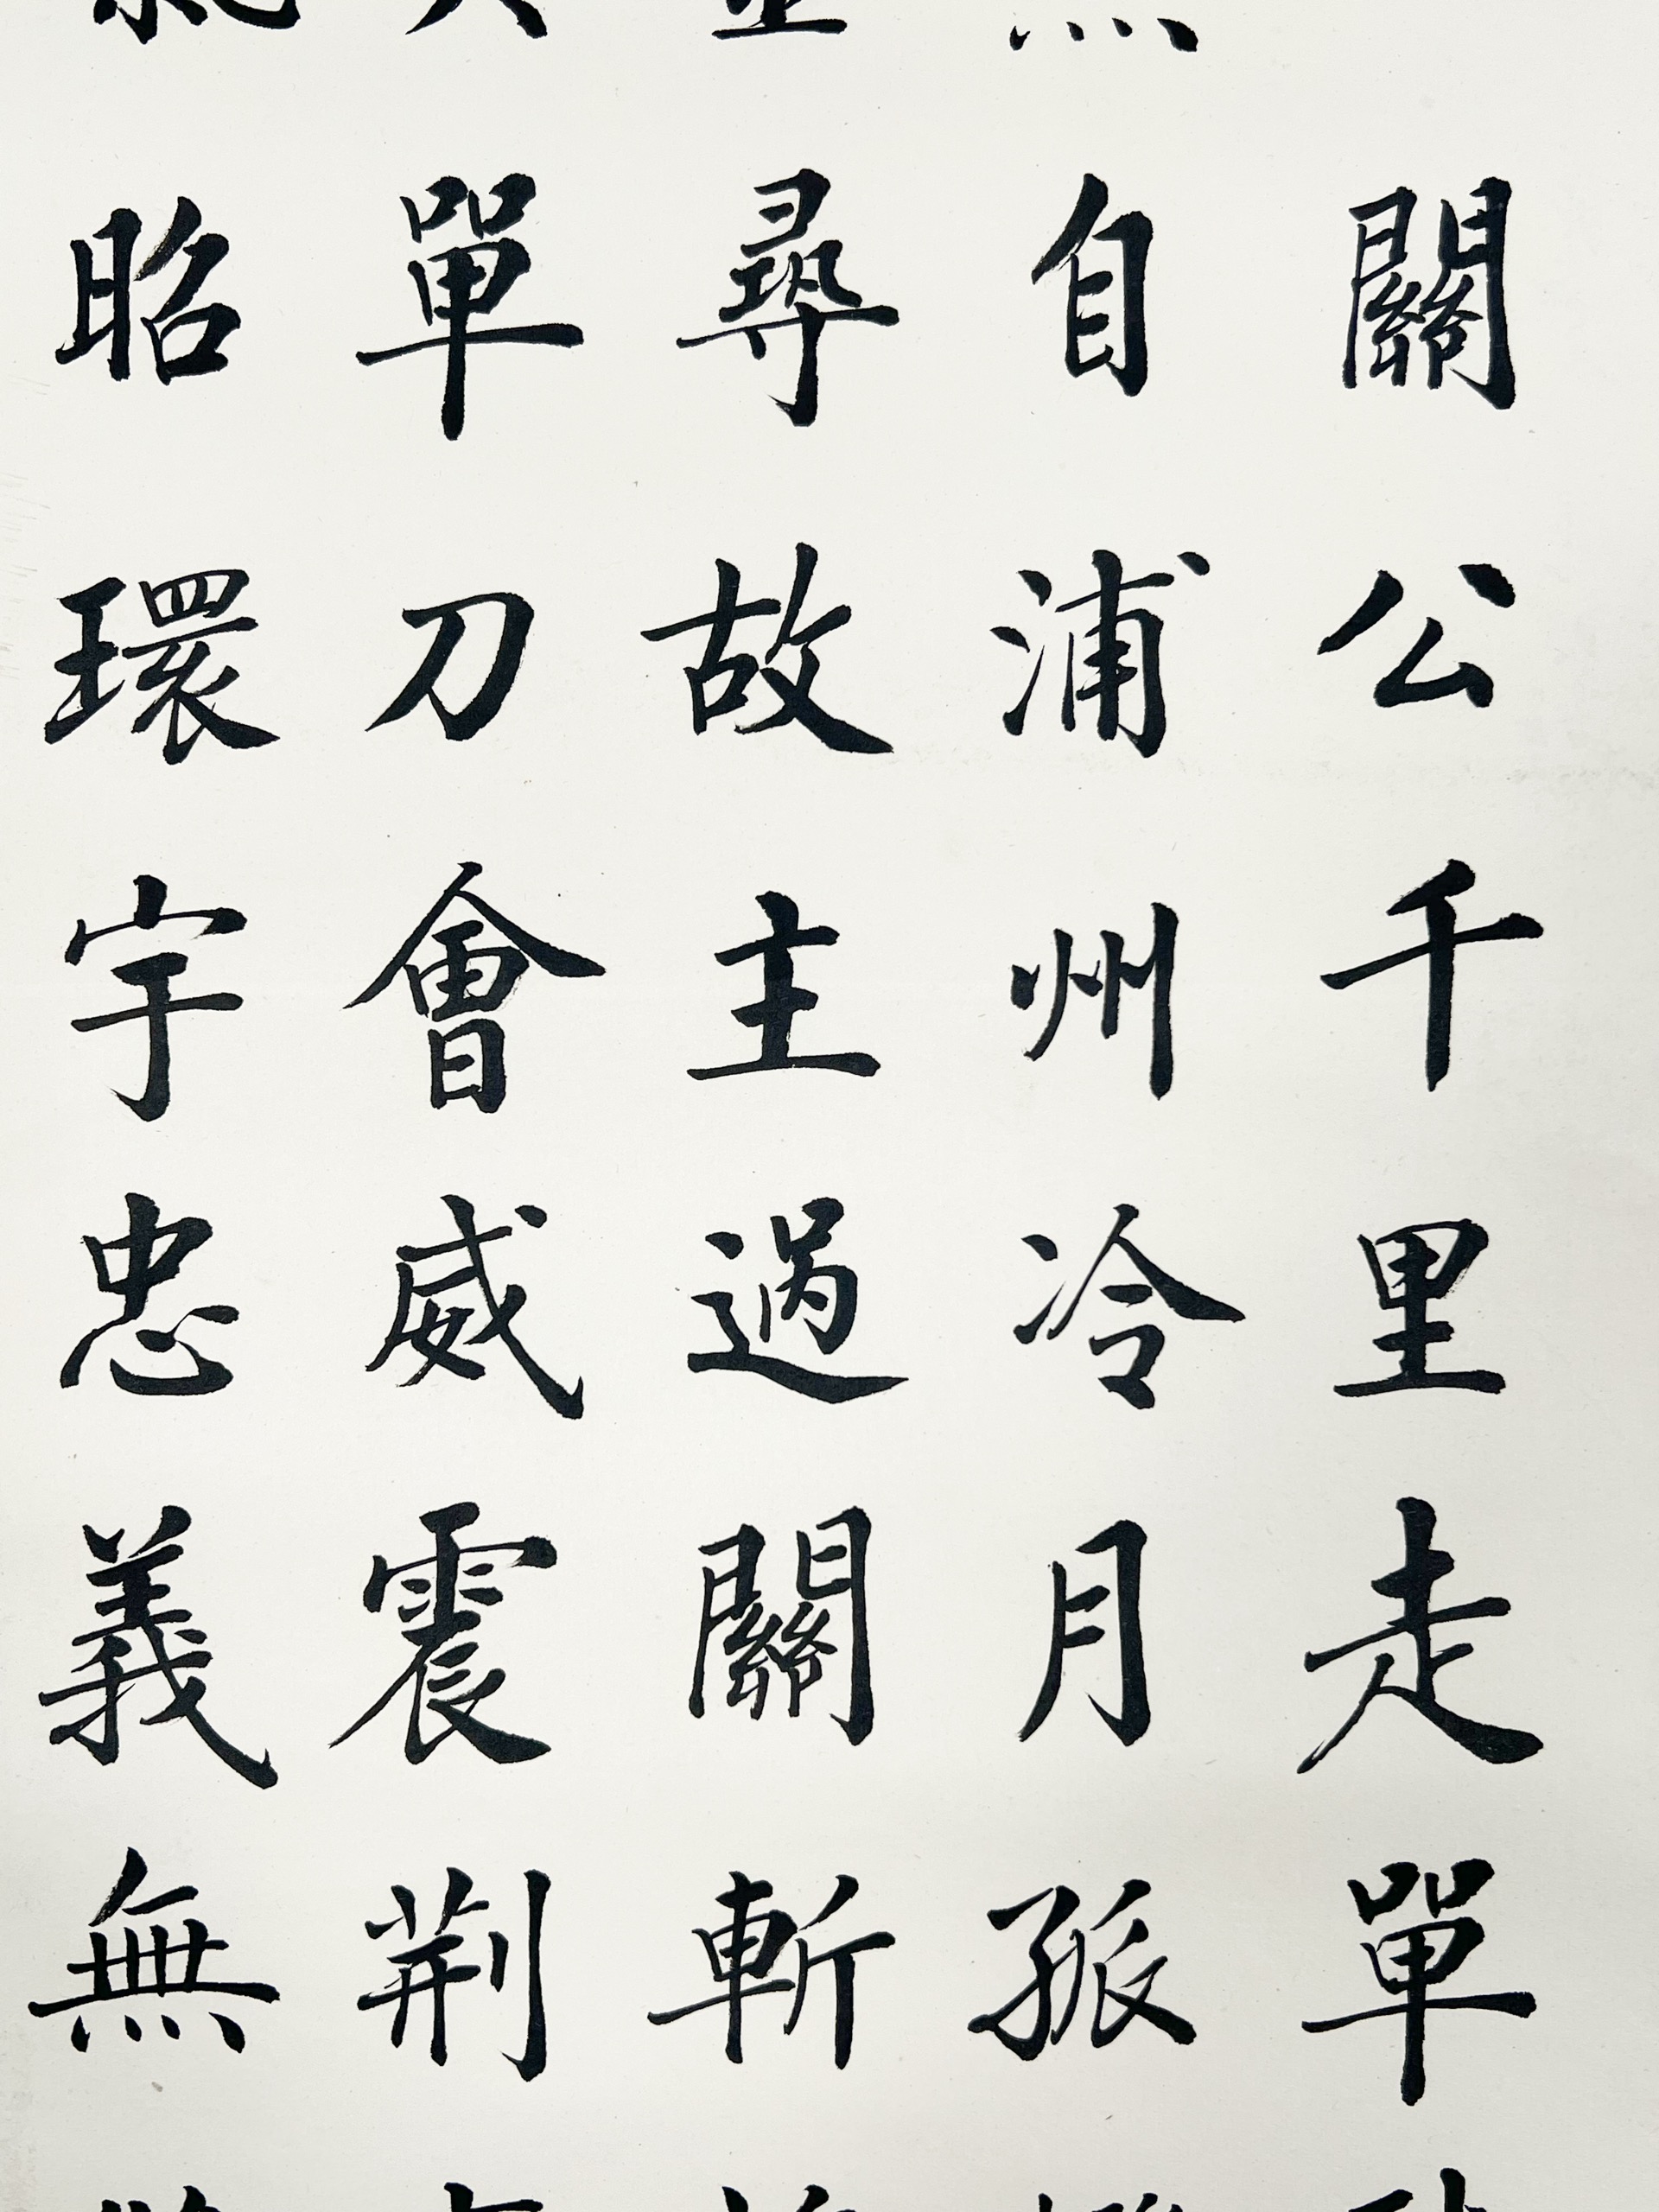 關公千里走單
自浦州冷月孤
尋故主過關斬
單刀會威震荆
昭環宇忠義無